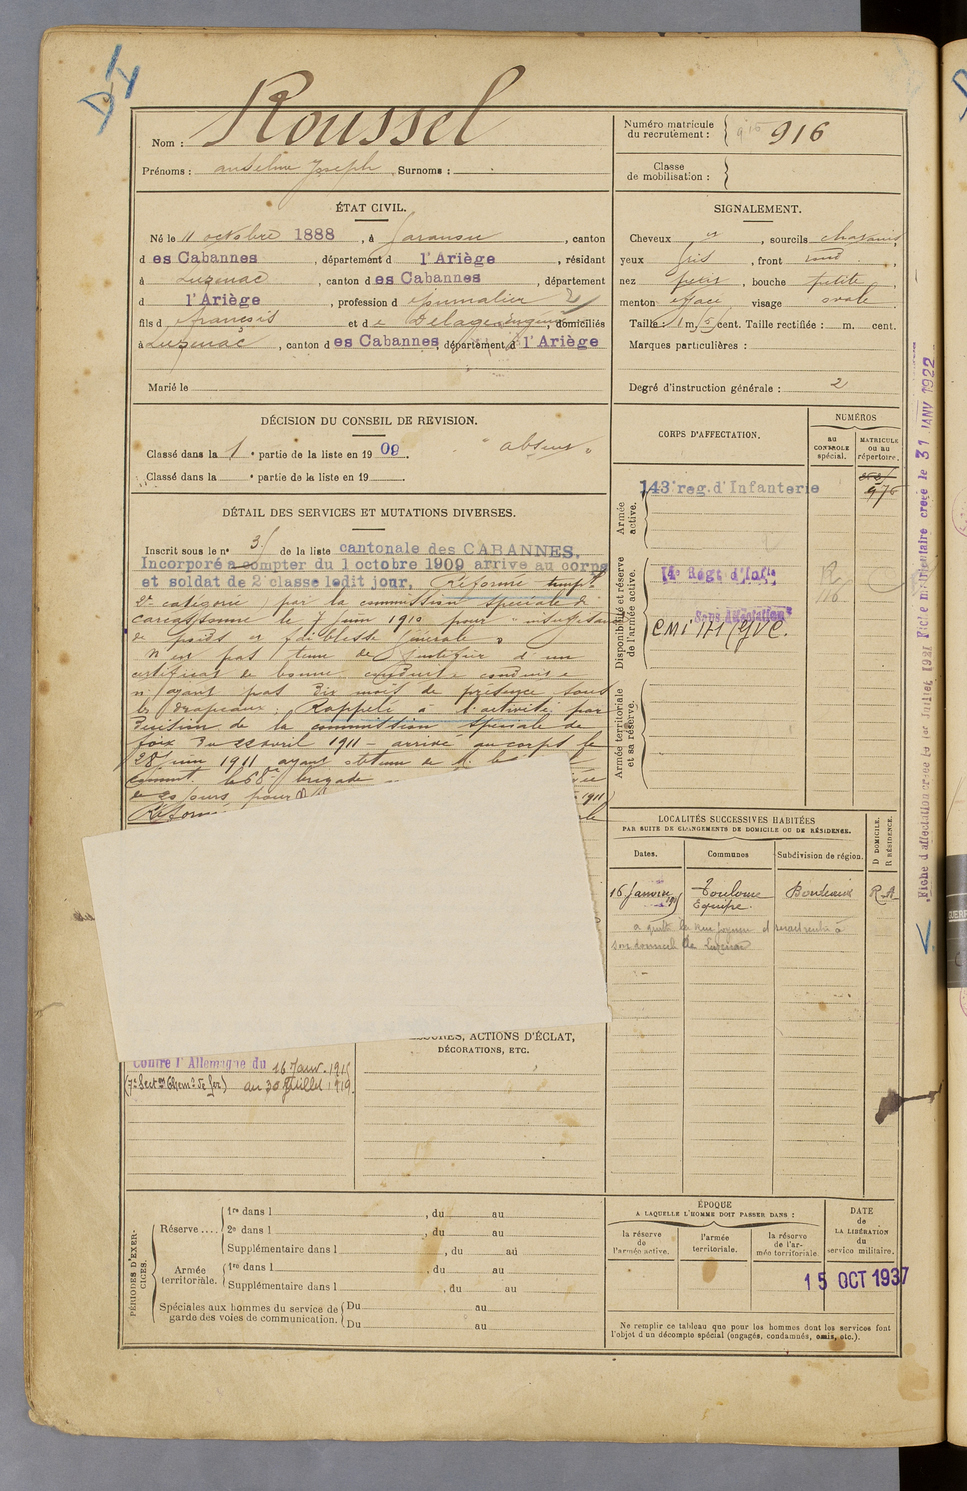 Roussel
Nom :
Prénoms : anselme Joseph , Surnoms :
Numéro matricule
du recrutement : 916
Classe
de mobilisation :
ÉTAT CIVIL.
Né le 11 octobre 1888 , à Garanou , canton
d es Cabannes , département d l'Ariège , résidant
à Luzenac , canton d es Cabannes , département
d l'Ariège , profession d
fils d françois et de Delage , domiciliés
à Luzenac , canton d es Cabannes , département d l'Ariège
Marié le
SIGNALEMENT.
Cheveux , sourcils chatains
yeux gris , front rond ,
nez petit , bouche petite ,
menton effacé visage ovale
Taille : 1 m. cent. Taille rectifiée : m. cent.
Marques particulières :
Degré d'instruction générale : 2
DÉCISION DU CONSEIL DE REVISION.
Classé dans la 1 e partie de la liste en 19 09 . " absent "
Classé dans la e partie de la liste en 19 .
DÉTAIL DES SERVICES ET MUTATIONS DIVERSES.
Inscrit sous le n° 3 de la liste cantonale des CABANNES.
Incorporé à compter du 1 octobre 1909 arrivé au corps
et soldat de 2e classe ledit jour. Réformé tempre
2e catégorie par la commission spéciale de
Carcassonne le 7 juin 1910 pour " insuffisance
de poids et faiblesse générale "
N'est pas tenu de justifier d'un
certificat de bonne conduite
n'ayant pas dix mois de présence sous
les drapeaux ; Rappelé à l'activité par
décision de la commission spéciale de
foix du 22 avril 1911 - arrivé au corps le
28 juin 1911 ayant obtenu de M.
Command. la 68e brigade
de 20 jours pour 1911)
Réformé
CORPS D'AFFECTATION.
NUMÉROS
au
CONTROLE
spécial.
MATRICULE
ou au
répertoire.
Armée
active.
143e reg. d'Infanterie
976
Disponibilité et réserve
de l'armée active.
14e Régt d'Infie
Sans Affectation
CMI 171 GVC.
Armée territoriale
et sa réserve.
LOCALITÉS SUCCESSIVES HABITÉES
PAR SUITE DE CHANGEMENTS DE DOMICILE OU DE RÉSIDENCE.
Dates.
Communes
Subdivision de région.
D DOMICILE.
R RÉSIDENCE.
16 Janvier Toulouse Bordeaux R.A
Equipe.
a quitté
son domicile de Luzenac
Contre l'Allemagne du 16 Janv. 1915
(7e Sect on Chem. de fer) au 30 Juillet 1919.
BLESSURES, ACTIONS D'ÉCLAT,
DÉCORATIONS, ETC.
PÉRIODES D'EXER-
CICES.
Réserve ....
1re dans l , du au
2e dans l , du au
Supplémentaire dans l , du au
Armée
territoriale.
1re dans l , du au
Supplémentaire dans l , du au
Spéciales aux hommes du service de
garde des voies de communication.
Du au
Du au
ÉPOQUE
A LAQUELLE L'HOMME DOIT PASSER DANS :
la réserve
de
l'armée active.
l'armée
territoriale.
la réserve
de l'ar-
mée territoriale.
DATE
de
LA LIBÉRATION
du
service militaire.
15 OCT 1937
Ne remplir ce tableau que pour les hommes dont les services font
l'objet d'un décompte spécial (engagés, condamnés, omis, etc.).
Fiche d'affectation créée le 1er Juillet 1921 Fiche matriculaire créée le 31 JANV 1922